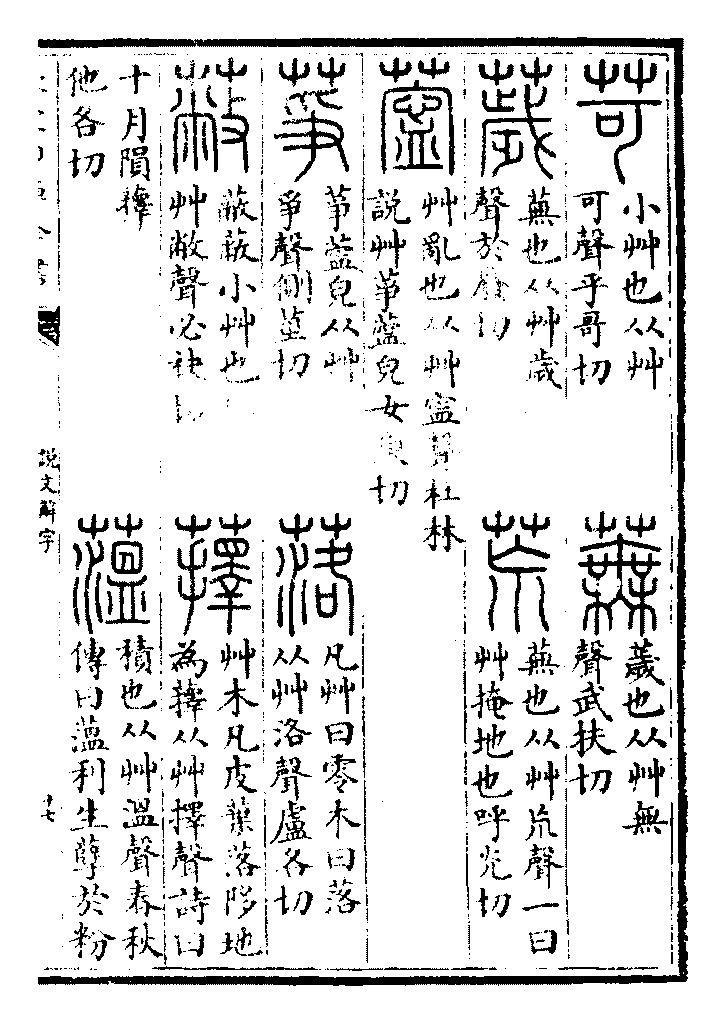 苛
小艸也从艸
可聲乎哥切
蕪
薉也从艸無
聲武扶切
薉
蕪也从艸歲
聲於廢切
荒
蕪也从艸㠩聲一曰
艸掩地也呼光切
薴
艸亂也从艸寍聲杜林
說艸䓭薴皃女庚切
䓭
䓭薴皃从艸
爭聲側莖切
落
凡艸曰零木曰落
从艸洛聲盧各切
蔽
蔽蔽小艸也
艸敝聲必袂切
蘀
艸木凡皮葉落陊地
為蘀从艸擇聲詩曰
十月隕蘀
他各切
薀
積也从艸溫聲春秋
傳曰薀利生孽於粉
說文解字
十七